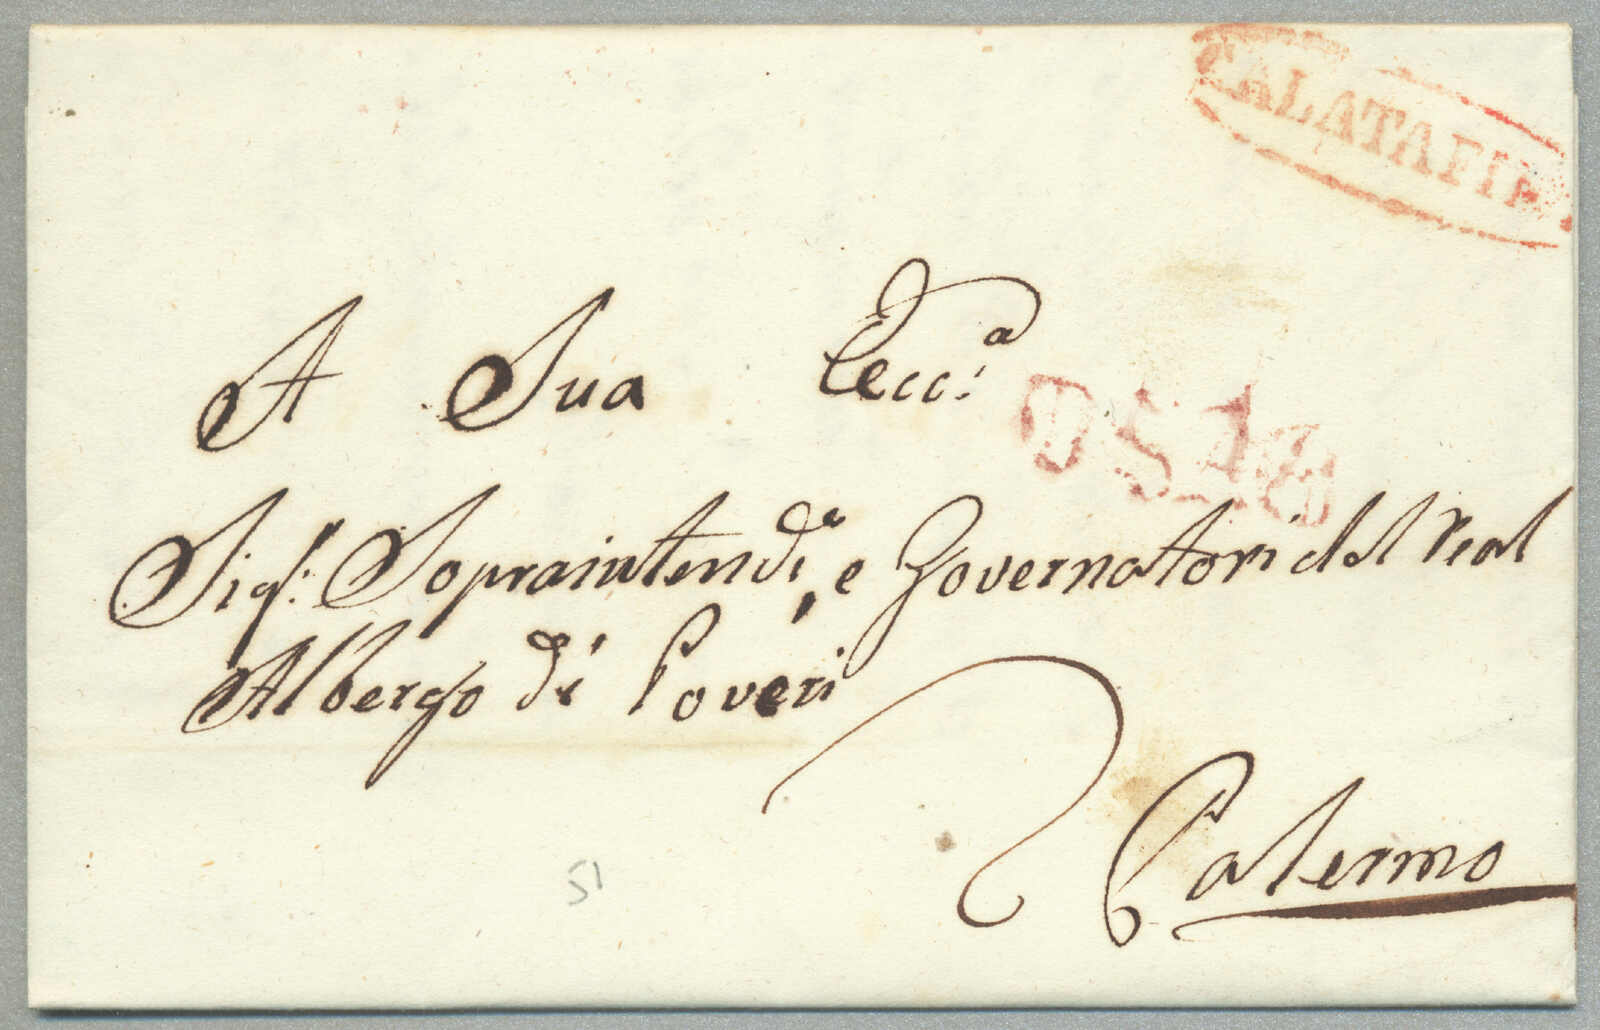 CALATAFIM
A Sua Ecc:ª
Sigʳ: Sopraintendᵉ:, e Governatori del Real
Albergo di Poveri
Palermo
51